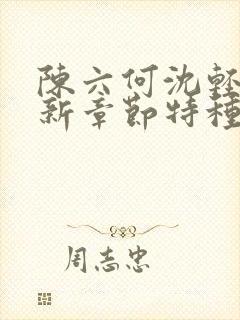 陳六何沈輕
新章節特種
周志忠